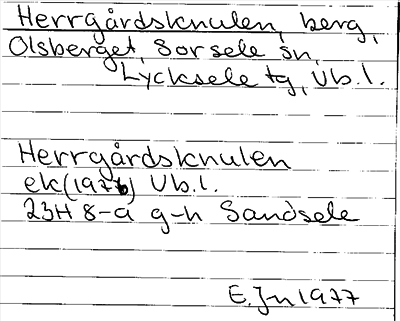 Herrgårdsknulen, berg,
Olsberget, Sorsele sn,
Lycksele tg, Vb.l.
Herrgårdsknulen
ek(1976) Vb.l.
23H 8-a g-h Sandsele
E.Jn 1977